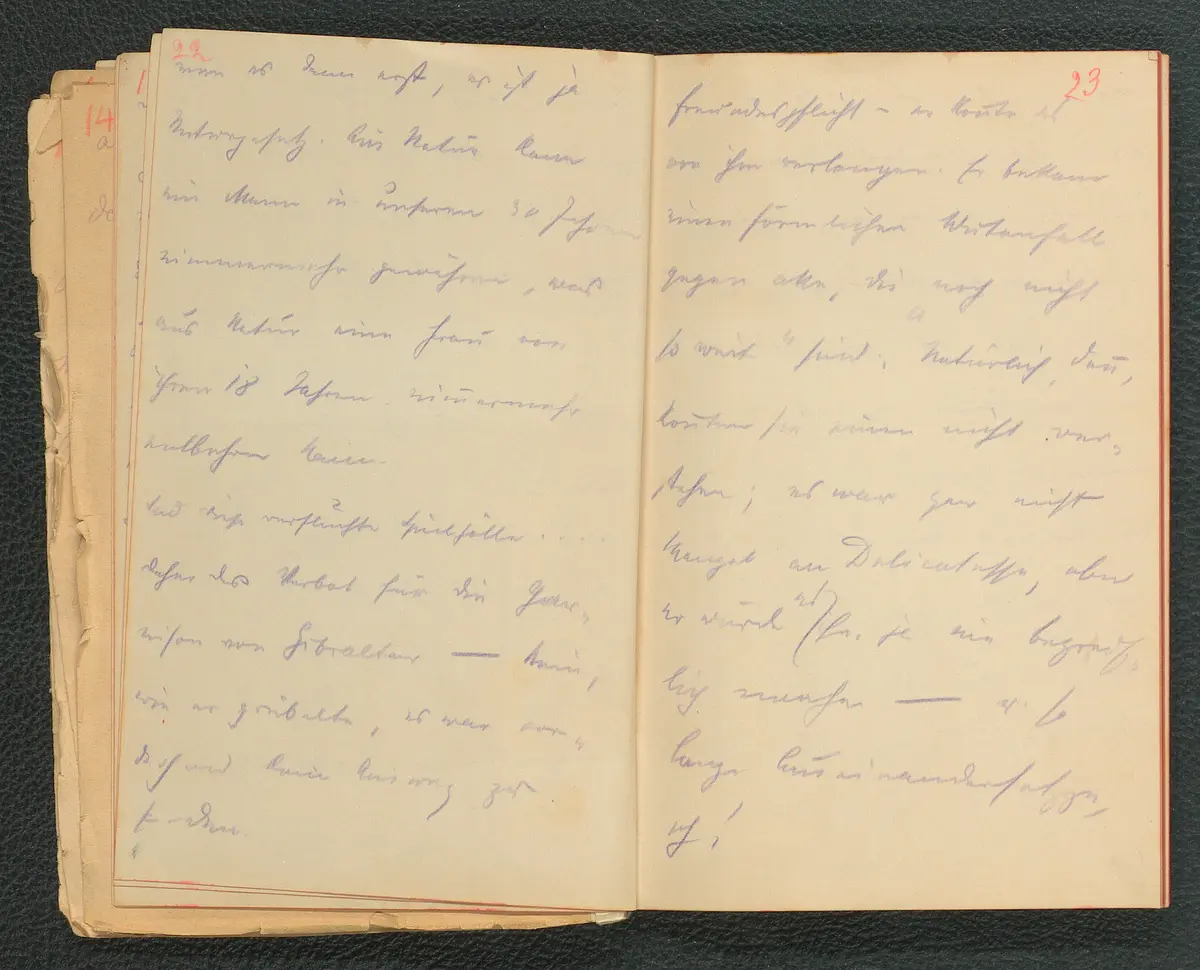 22
man es denn erst, es ist ja
Naturgesetz. Aus Natur kann
ein Mann in unseren 30 Jahren
nimmermehr gewähren, was
aus Natur eine Frau von
ihren 18 Jahren nimmermehr
entbehren kann.
Und diese verfluchte Spielhölle . . . .
daher das Verbot für die Gar-
nison von Gibraltar — Nein,
wie er grübelte, es war
kein Ausweg zu
finden.
23
Freundespflicht – er konnte es
von ihm verlangen. Er bekam
einen förmlichen Wutanfall
gegen alle, die noch nicht
so weit" sind. Natürlich, dann,
konnten sie einen nicht ver-
stehen; es war gar nicht
Mangel an Delicatesse, aber
er würde es ja nie begreif-
lich machen — so
lange Auseinandersetzge,
ach!
14